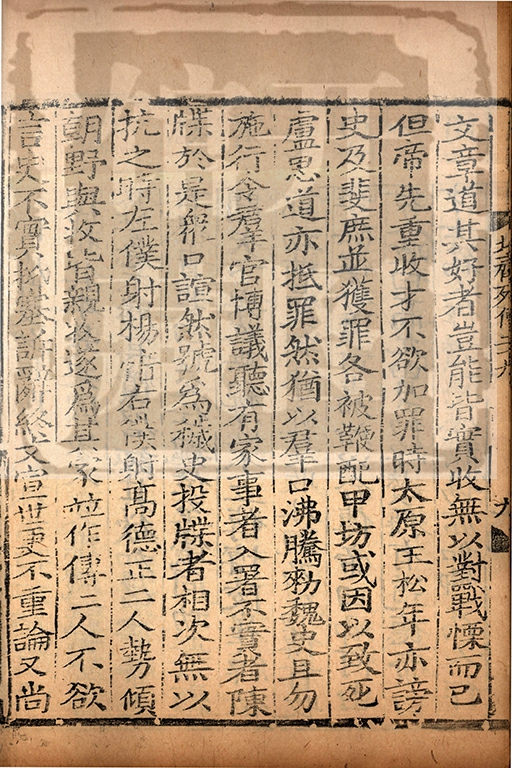 文章道其好者豈能皆實收無以對戰慄而已
但帝先重收才不欲加罪時太原王松年亦謗
史及斐庶並獲罪各被鞭配甲坊或因以致死
盧思道亦抵罪然猶以羣口沸騰勑魏史且勿
施行令羣官博議聽有家事者入署不實者陳
牒於是衆口諠然號爲穢史投牒者相次無以
抗之時左僕射楊愔右僕射髙德正二人勢傾
朝野與收皆親收遂爲其家並作傳二人不欲
言史不實抑塞訴辭終文宣世更不重論又尚
北齊列傳二九
九